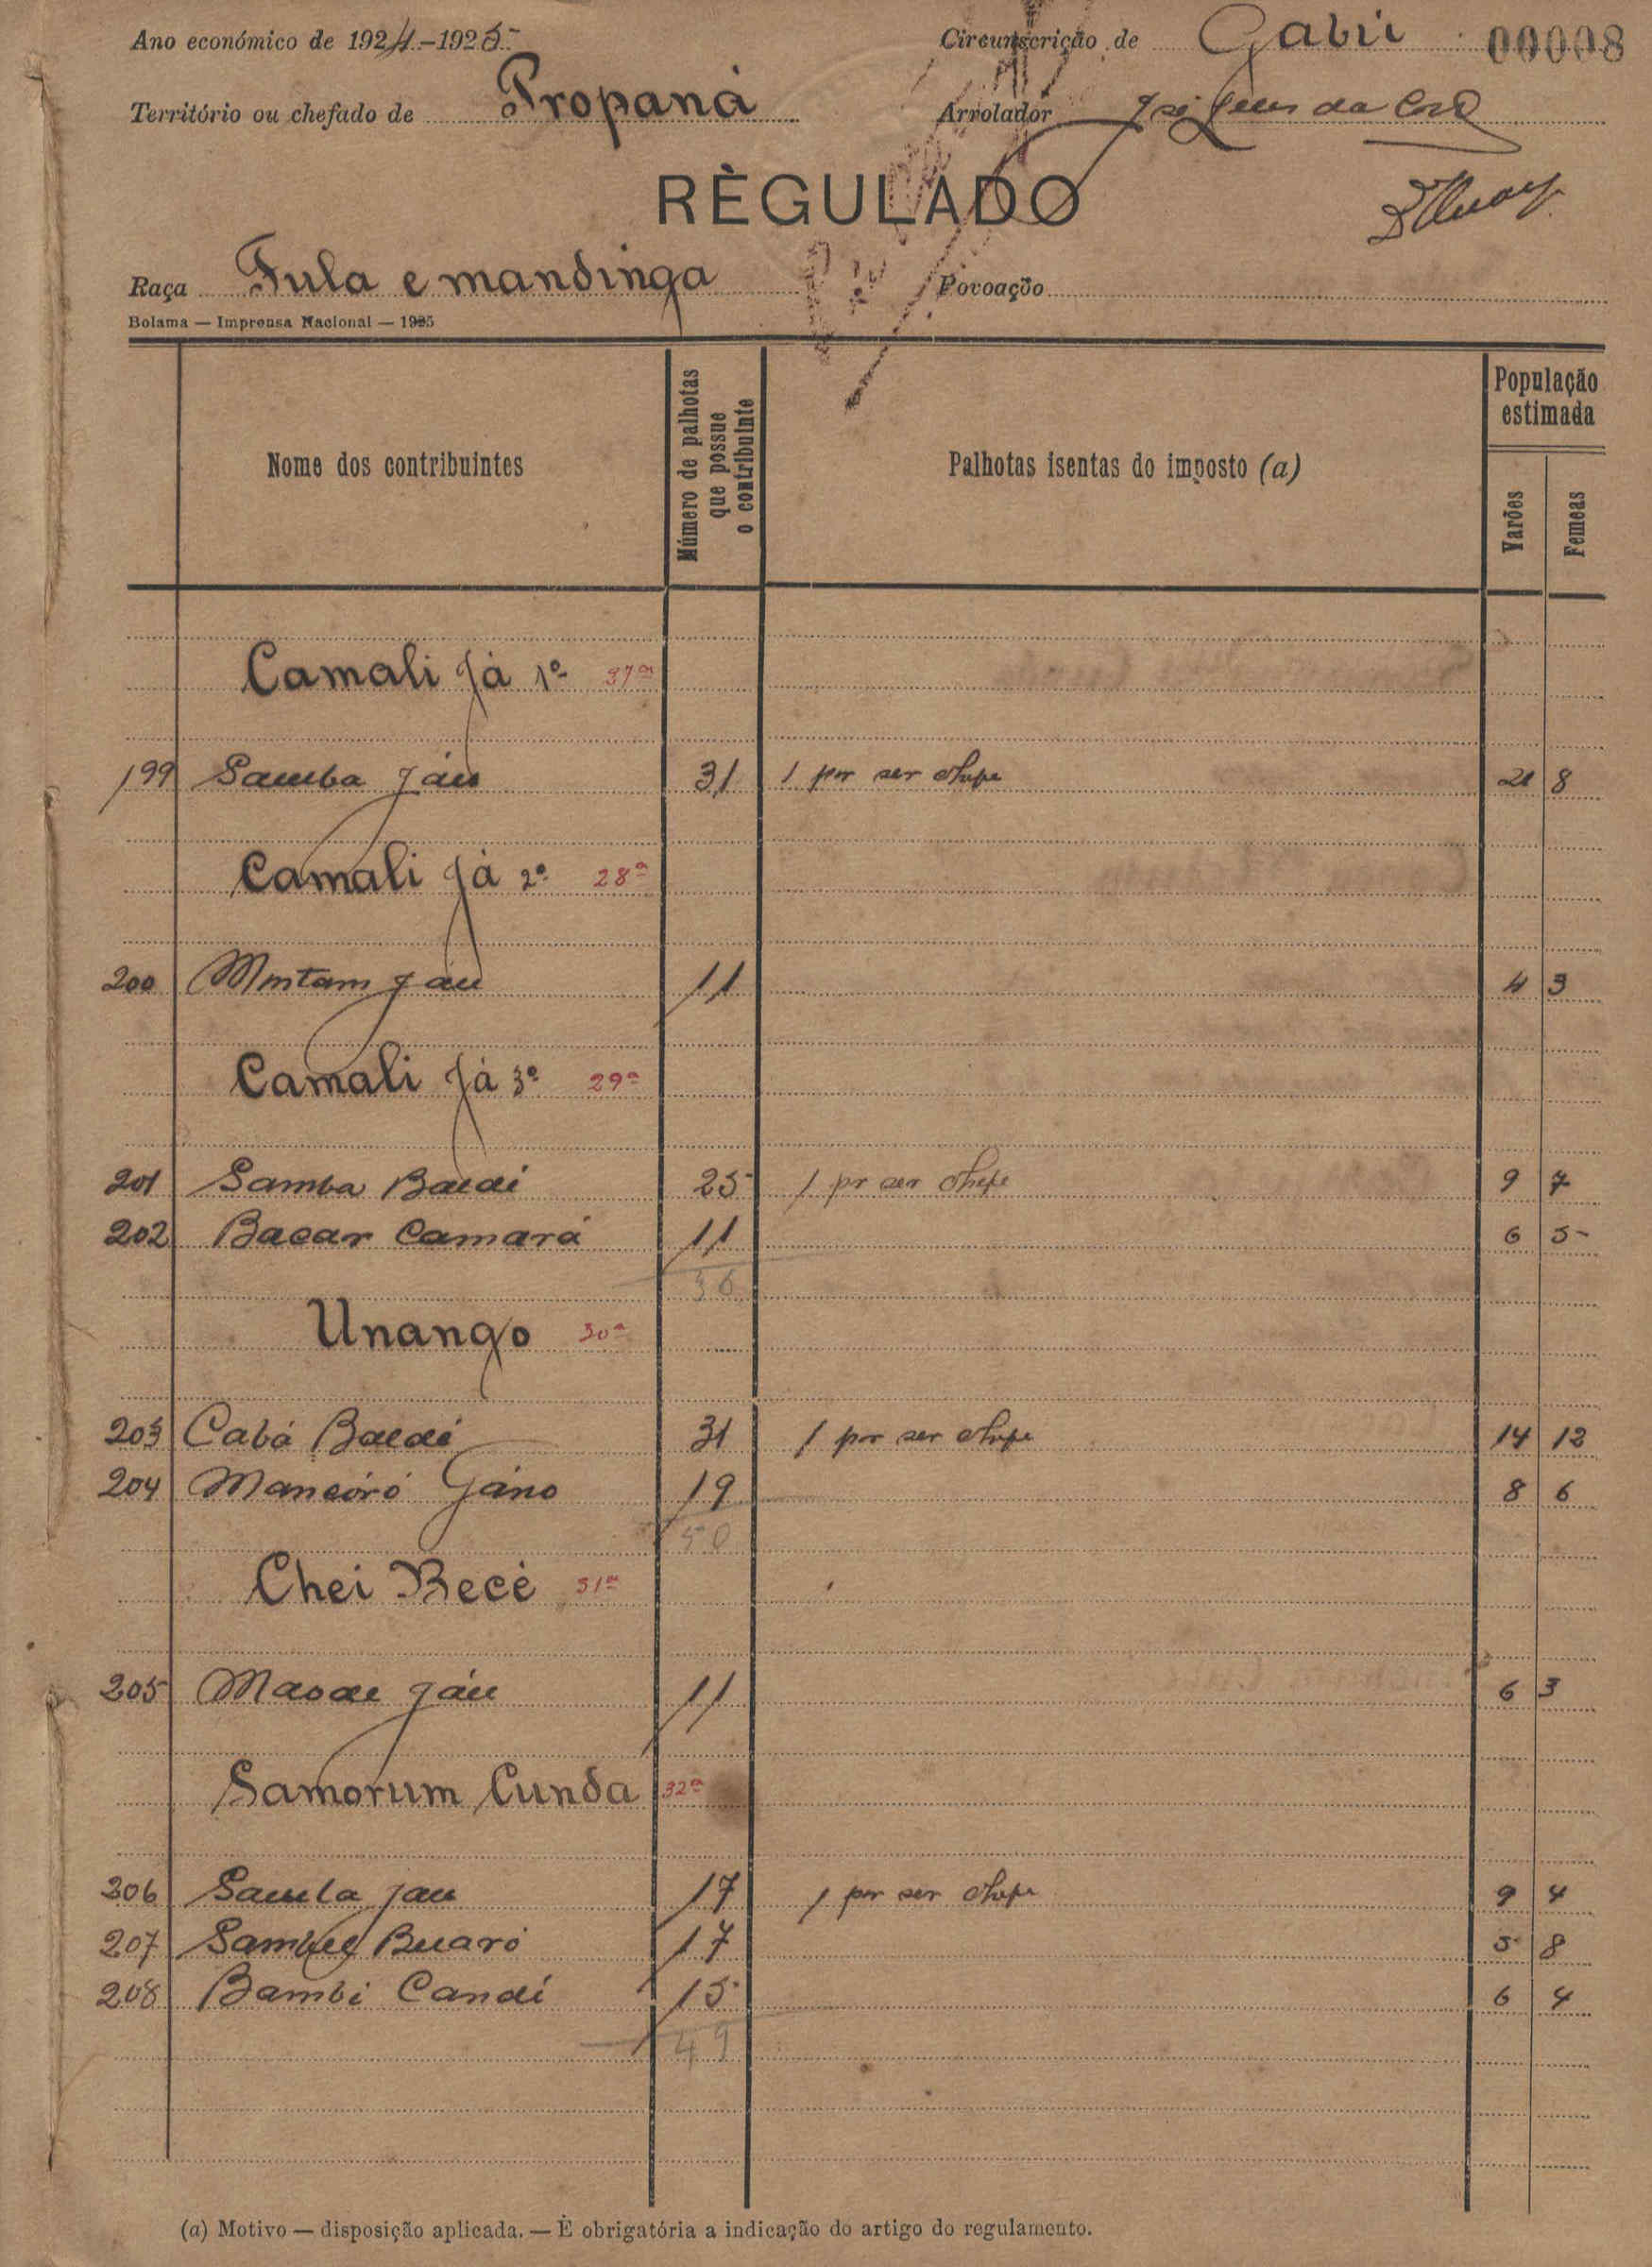 Ano económico de 1924-1925 Circunscrição de Gabú 00008
Território ou chefado de Propaná Arrolador
RÈGULADO
Raça Fula e mandinga Povoação
Bolama — Imprensa Nacional — 1925
Nome dos contribuintes
Número de palhotas que possue o contribuinte
Palhotas isentas do imposto (a)
População estimada
Varões
Femeas
Camali Já 1º 37ª
199 Samba Jáu 31 1 por ser chefe 21 8
Camali Já 2º 28ª
200 Jáu 11 4 3
Camali Já 3º 29ª
201 Samba Baldé 25 1 por ser chefe 9 7
202 Bacar Camará 11 6 5
36
Unango 30ª
203 Cabá Baldé 31 1 por ser chefe 14 12
204 Mancóró Gáno 19 8 6
50
Chei Becé 31ª
205 Jáu 11 6 3
Samorum Cunda 32ª
206 Samba Jau 17 1 por ser chefe 9 4
207 Buaró 17 5 8
208 Bambi Candé 15 6 4
49
(a) Motivo — disposição aplicada. — É obrigatória a indicação do artigo do regulamento.